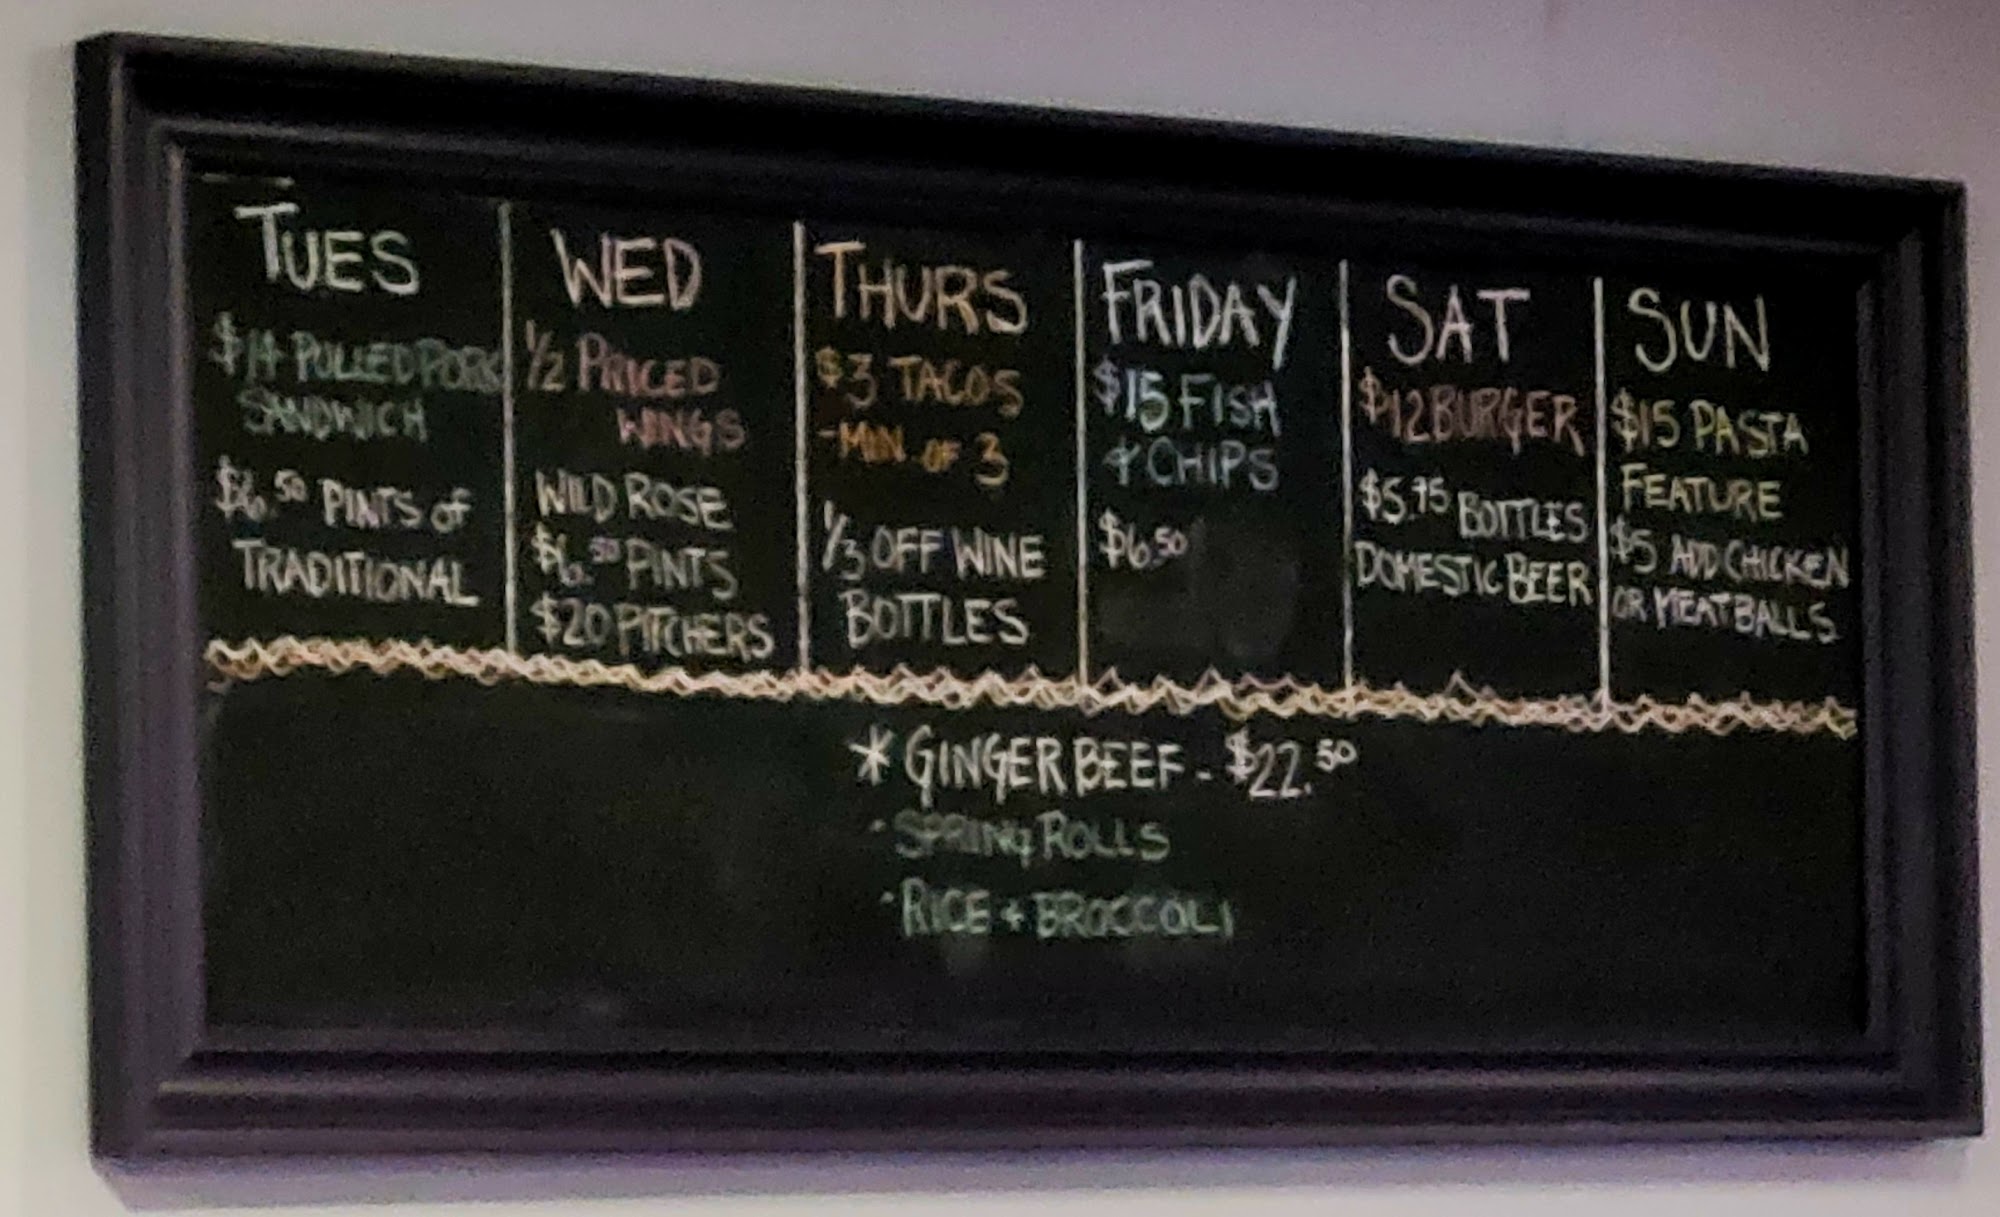 TUES
$14 PULLED PORK
SANDWICH
$6.50 PINTS of
TRADITIONAL
WED
1/2 PRICED
WINGS
WILD ROSE
$6.50 PINTS
$20 PITCHERS
THURS
$3 TACOS
- MIN. OF 3
1/3 OFF WINE
BOTTLES
FRIDAY
$15 FISH
+ CHIPS
$6.50
SAT
$12 BURGER
$5.75 BOTTLES
DOMESTIC BEER
SUN
$15 PASTA
FEATURE
$5 ADD CHICKEN
OR MEATBALLS
* GINGER BEEF - $22.50
- SPRING ROLLS
- RICE + BROCCOLI